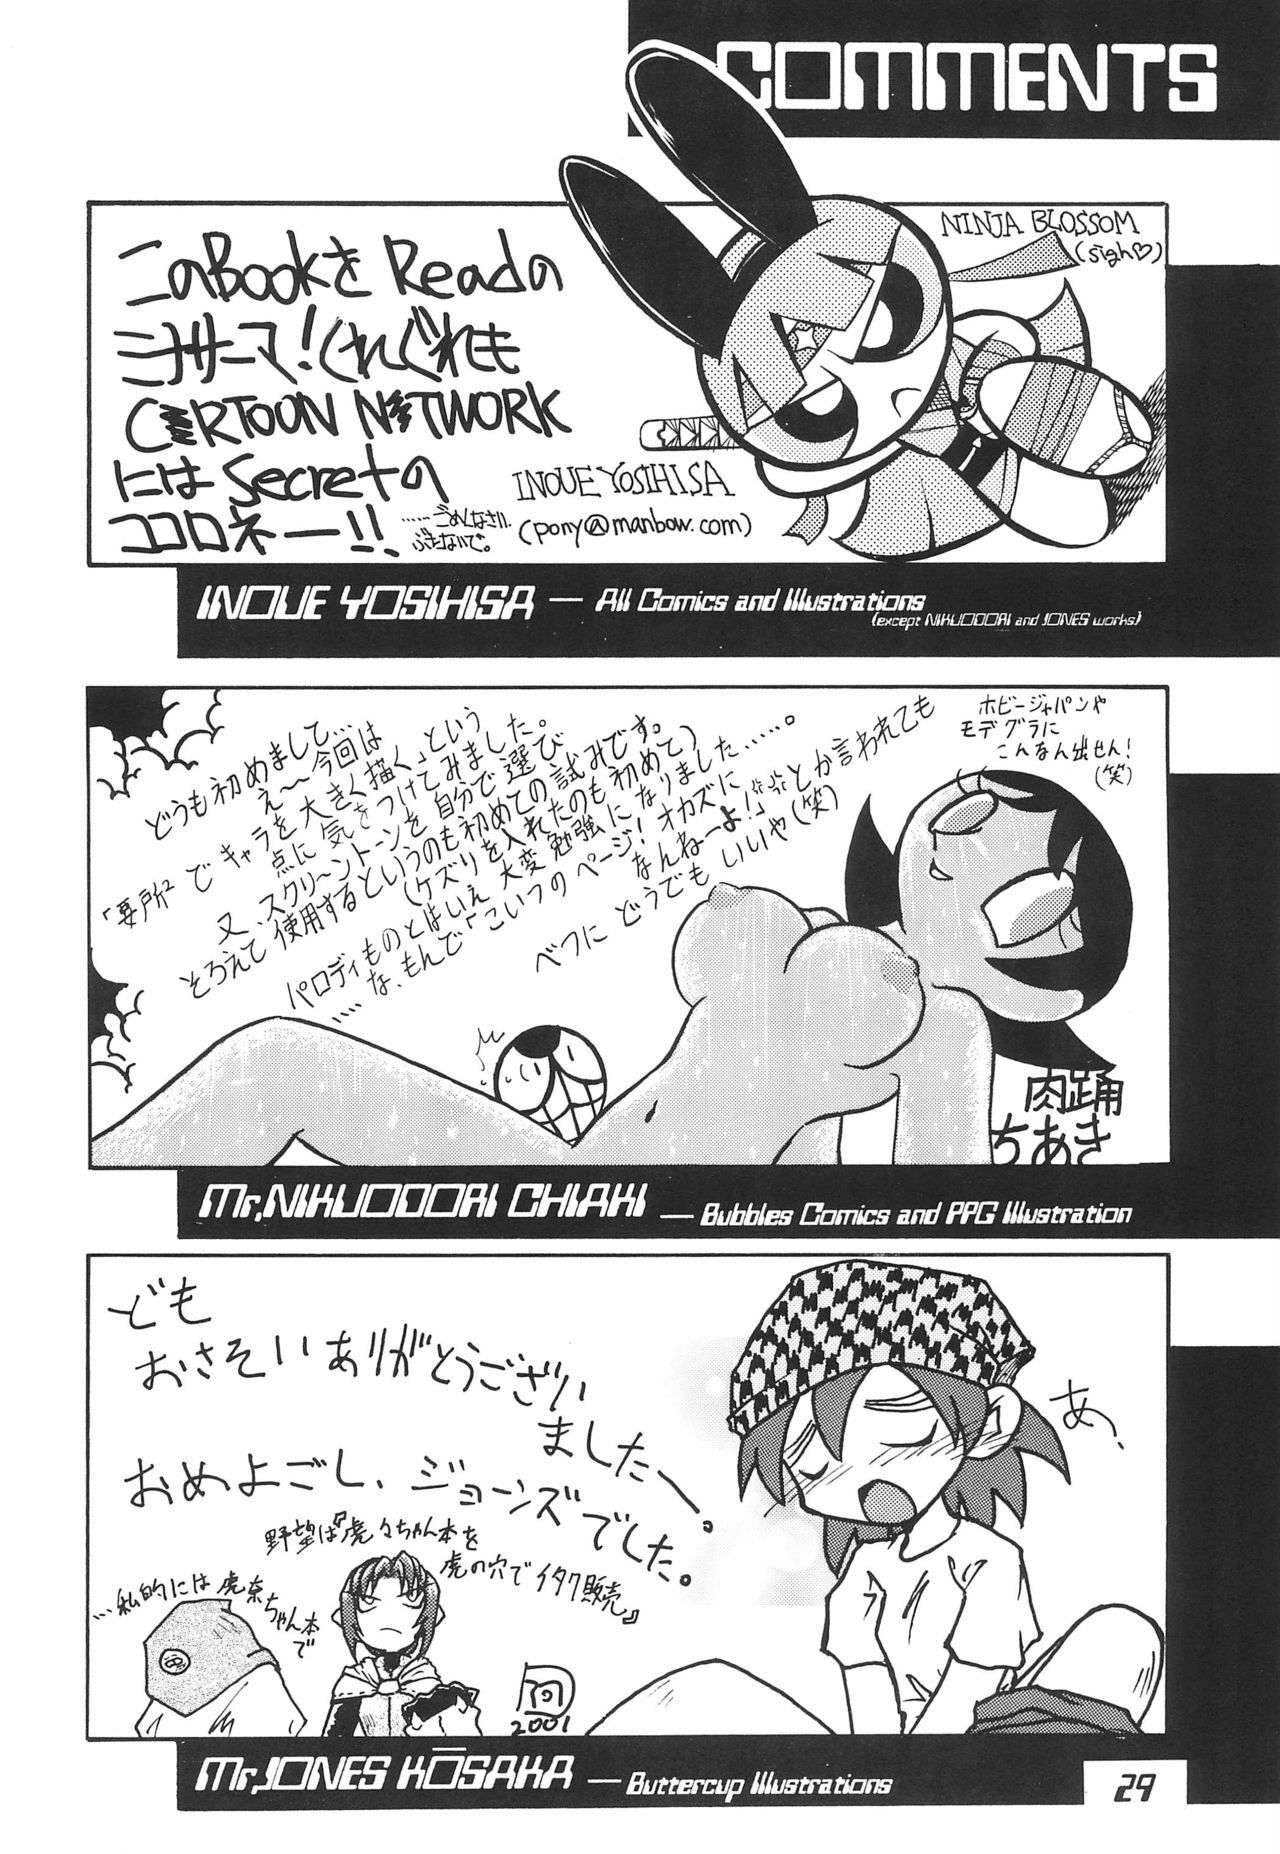 COMMENTS
NINJA BLOSSOM
(sigh♡)
このBookをReadの
ミナサーマ!くれぐれも
C RTOON N TWORK
にはSecretの
ココロネー!!
……ごめんなさい。
ぶたないで。
INOUE YOSIHISA
(pony@manbow.com)
INOUE YOSIHISA — All Comics and Illustrations
(except NIKUODORI and JONES works)
どうも初めまして…
え〜今回は
「要所²でキャラを大きく描く」という
点に気をつけてみました。
又、スクリーントーンを自分で選び
そろえて使用するというのも初めての試みです。
(ケズリを入れたのも初めて)
パロディものとはいえ大変勉強になりました……。
…な、もんで「こいつのページ!オカズに
なんねーよ!」とか言われても
べつにどうでもいいや(笑)
ホビージャパンや
モデグラに
こんなん出せん!
(笑)
肉踊
ちあき
Mr.NIKUODORI CHIAKI — Bubbles Comics and PPG Illustration
ども
おさそいありがとうござい
ましたー。
おめよごし、ジョーンズでした。
野望は『虎々ちゃん本を
虎の穴でイタク販売』
…私的には虎奈ちゃん本で
あ、
2001
Mr.JONES KŌSAKA — Buttercup Illustrations
29